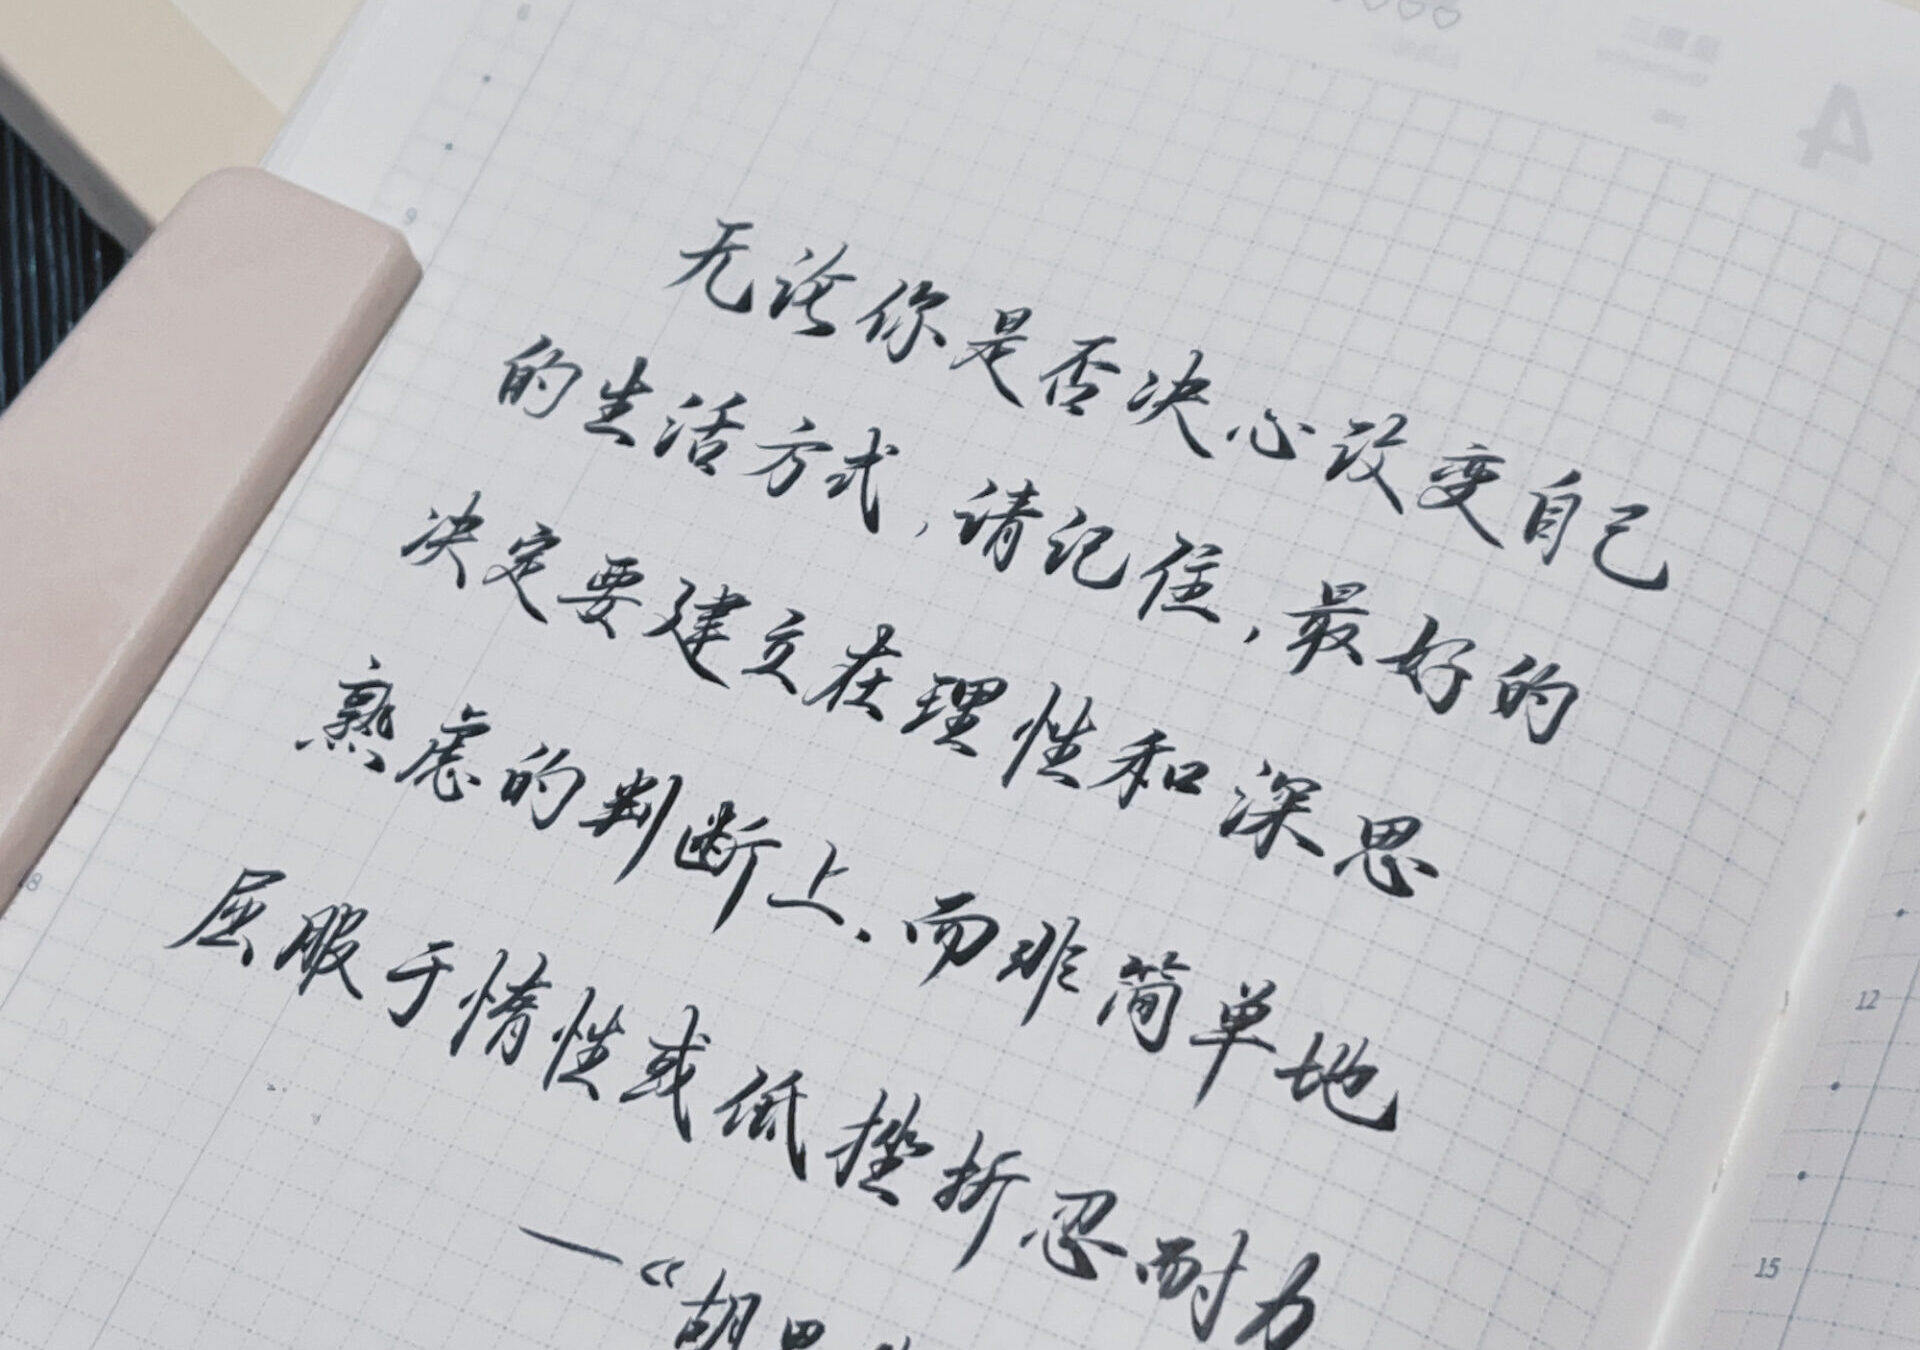 4
9
无论你是否决心改变自己
的生活方式,请记住,最好的
决定要建立在理性和深思
熟虑的判断上、而非简单地
屈服于惰性或低挫折忍耐力
—“胡思
12
15
18